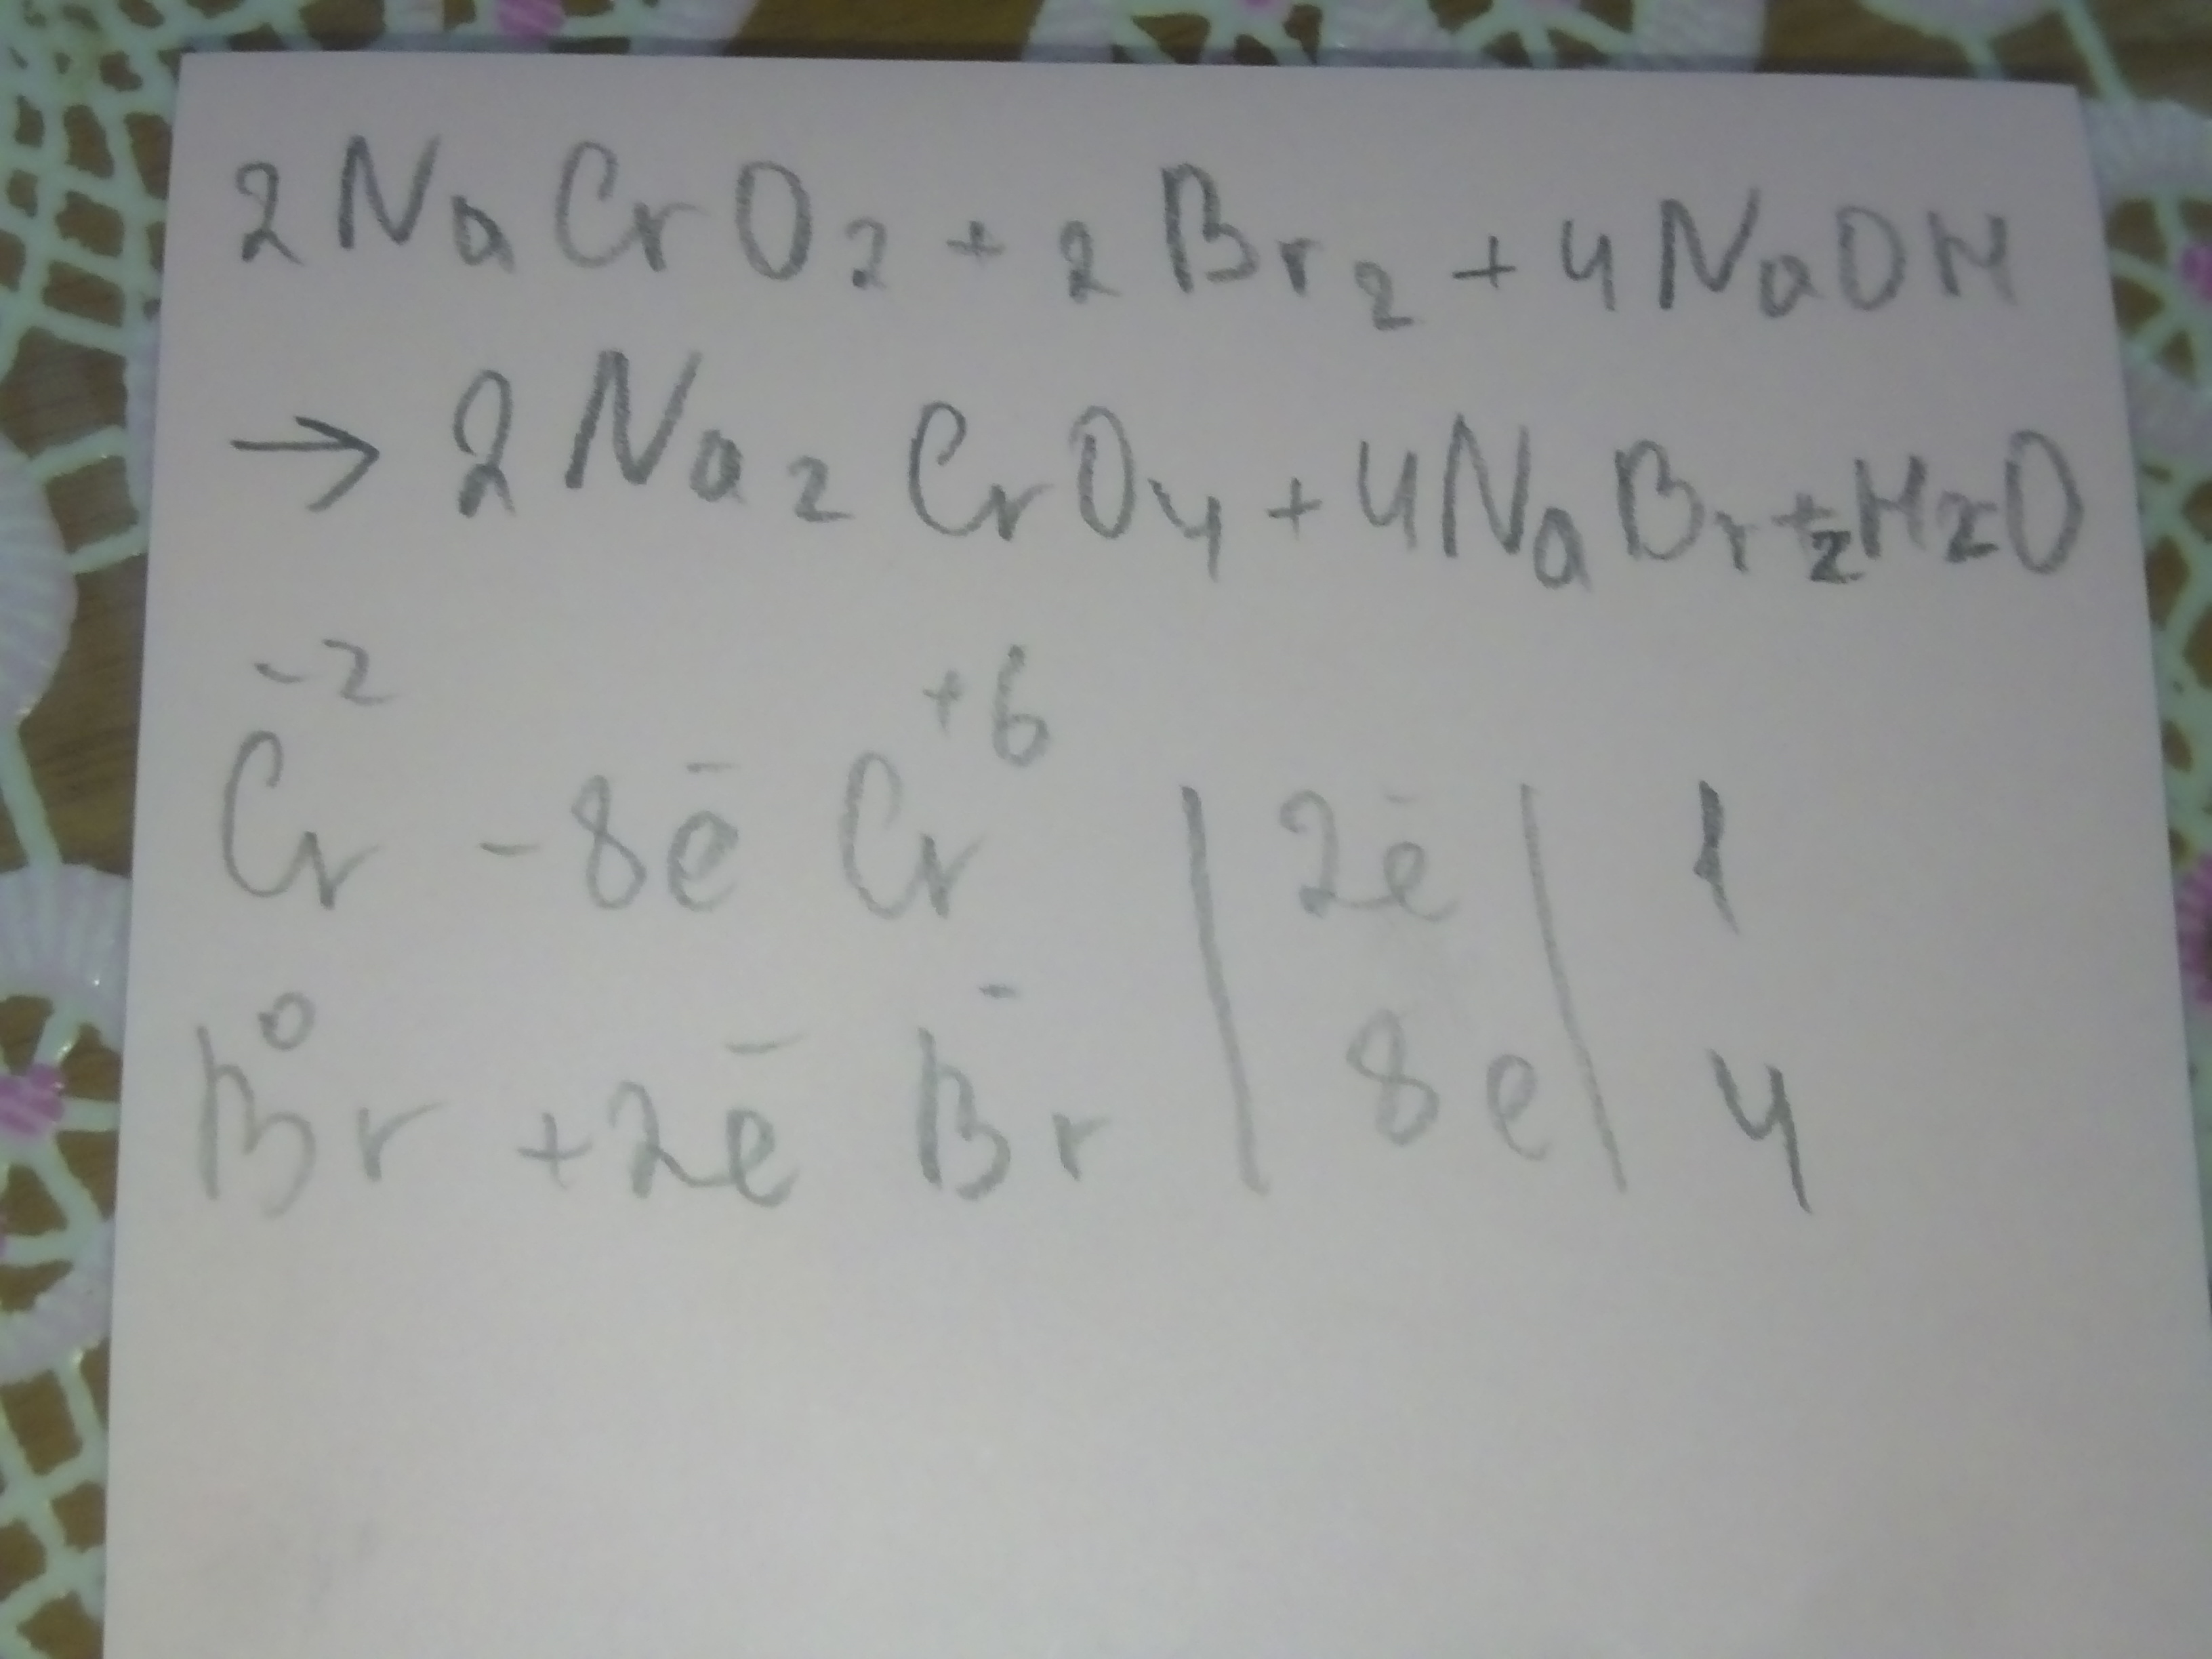 2NaCrO₂ + 2Br₂ + 4NaOH
→ 2Na₂CrO₄ + 4NaBr + 2H₂O
Cr⁻² - 8e̅ Cr⁺⁶ | 2e̅ | 1
Br⁰ + 2e̅ Br⁻ | 8e | 4